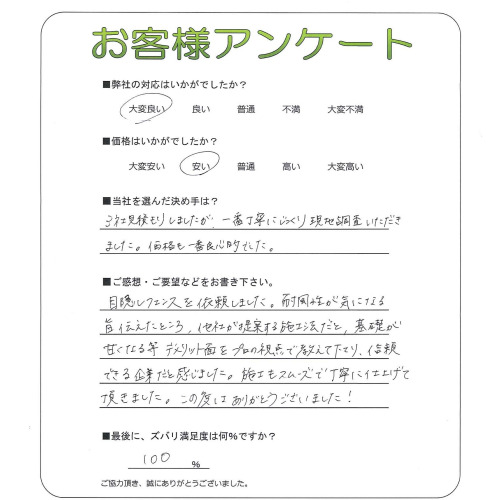 お客様アンケート
■弊社の対応はいかがでしたか？
大変良い 良い 普通 不満 大変不満
■価格はいかがでしたか？
大変安い 安い 普通 高い 大変高い
■当社を選んだ決め手は？
3社見積もりしましたが、一番丁寧にじっくり現地調査いただき
ました。価格も一番良心的でした。
■ご感想・ご要望などをお書き下さい。
目隠しフェンスを依頼しました。耐風性が気になる
旨伝えたところ、他社が提案する施工法だと、基礎が
甘くなる等デメリット面をプロの視点で教えて下さり、信頼
できる企業だと感じました。施工もスムーズで丁寧に仕上げて
頂きました。この度はありがとうございました！
■最後に、ズバリ満足度は何%ですか？
100 %
ご協力頂き、誠にありがとうございました。